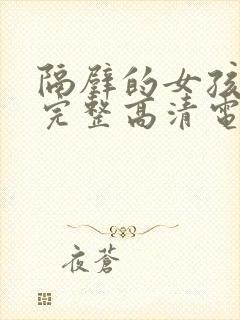 隔壁的女孩
完整高清電
夜蒼